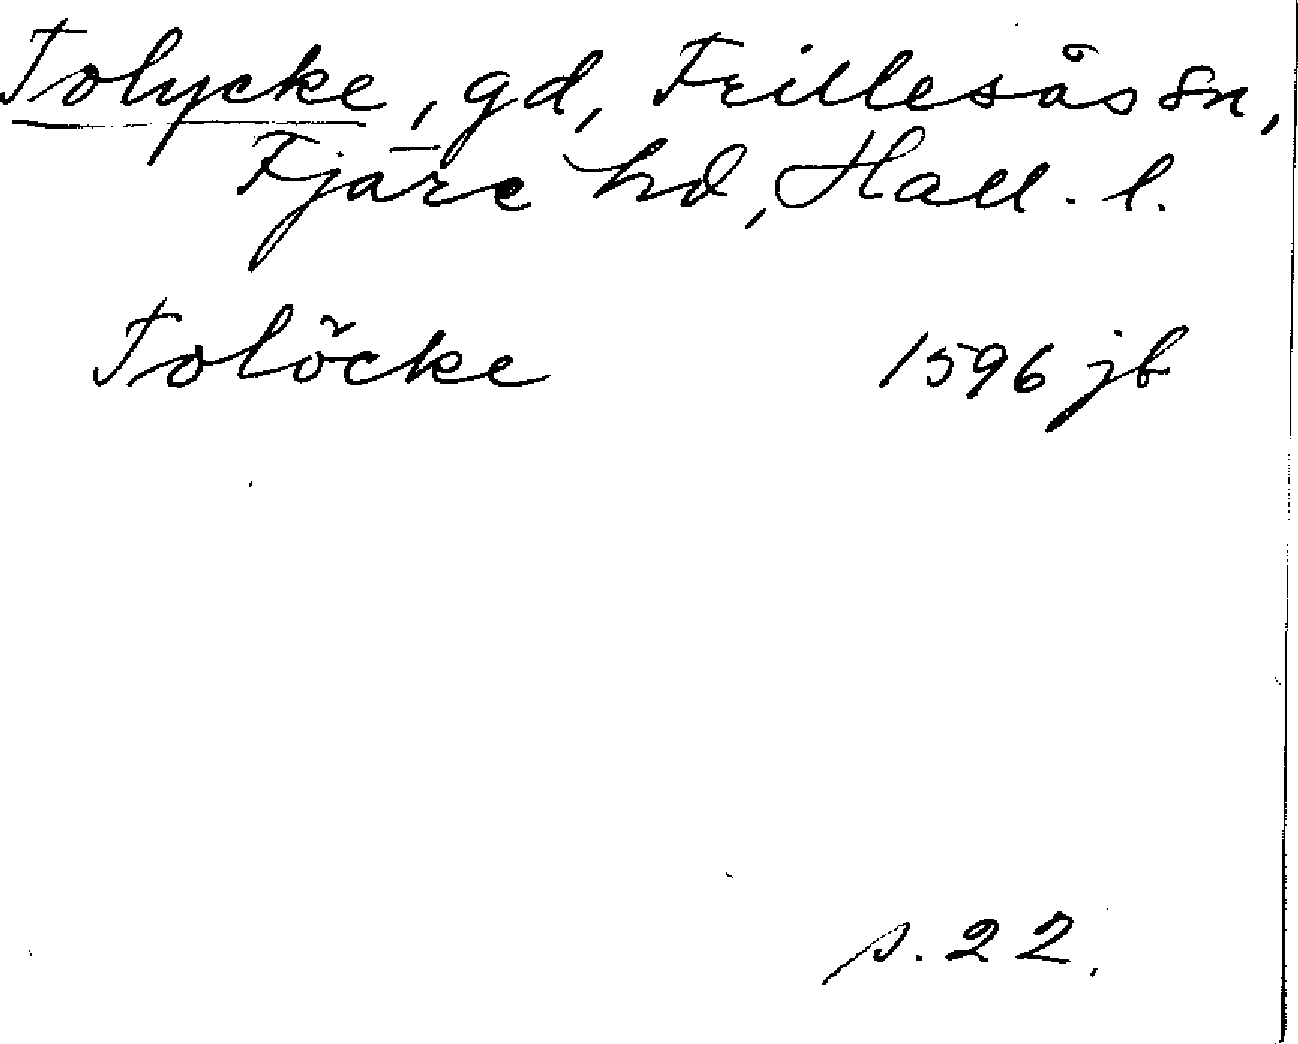 Tolycke, gd, Frillesås sn,
Fjäre hd, Hall. l.
Tolöcke 1596 jb
s. 22.